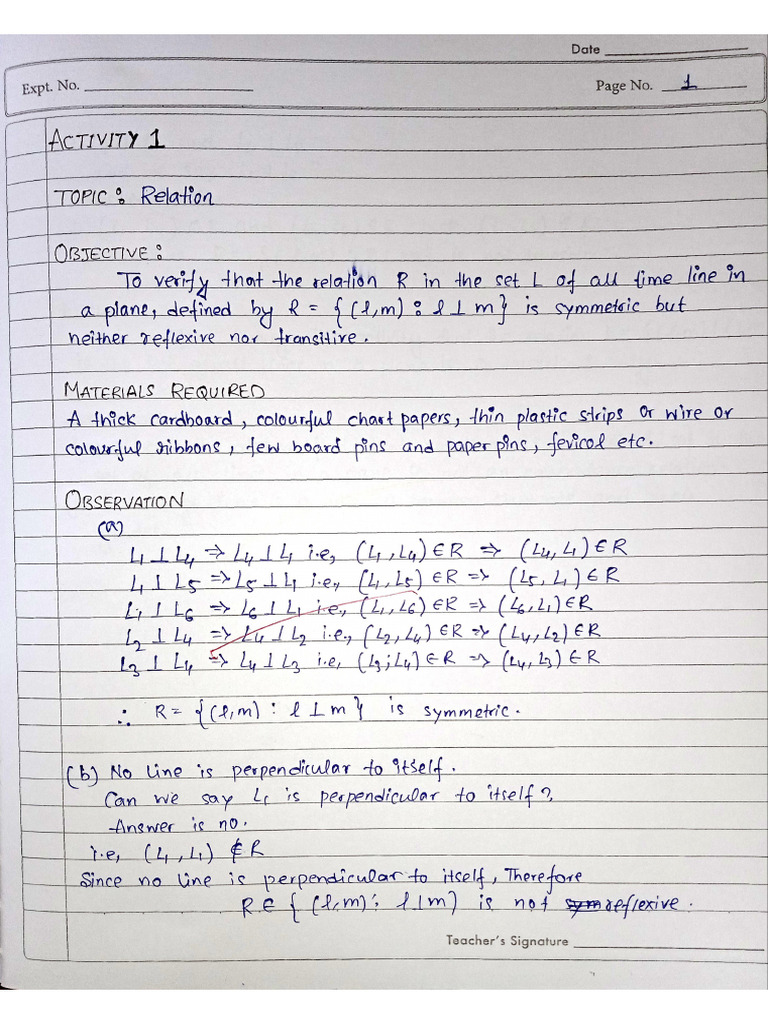 Date
Expt. No.
Page No. 1
ACTIVITY 1
TOPIC : Relation
OBJECTIVE :
To verify that the relation R in the set L of all time line in
a plane, defined by R = { (l,m) : l ⊥ m } is symmetric but
neither reflexive nor transitive.
MATERIALS REQUIRED
A thick cardboard, colourful chart papers, thin plastic strips or wire or
colourful ribbons, few board pins and paper pins, fevicol etc.
OBSERVATION
(a)
L₁ ⊥ L₄ => L₄ ⊥ L₁ i.e, (L₁, L₄) ∈ R => (L₄, L₁) ∈ R
L₁ ⊥ L₅ => L₅ ⊥ L₁ i.e, (L₁, L₅) ∈ R => (L₅, L₁) ∈ R
L₁ ⊥ L₆ => L₆ ⊥ L₁ i.e, (L₁, L₆) ∈ R => (L₆, L₁) ∈ R
L₂ ⊥ L₄ => L₄ ⊥ L₂ i.e., (L₂, L₄) ∈ R => (L₄, L₂) ∈ R
L₃ ⊥ L₄ => L₄ ⊥ L₃ i.e, (L₃, L₄) ∈ R => (L₄, L₃) ∈ R
∴ R = { (l,m) : l ⊥ m } is symmetric.
(b) No line is perpendicular to itself.
Can we say L₁ is perpendicular to itself?
Answer is no.
i.e, (L₁, L₁) ∉ R
Since no line is perpendicular to itself, Therefore
R ∈ { (l,m) : l ⊥ m ) is not sym reflexive.
Teacher's Signature